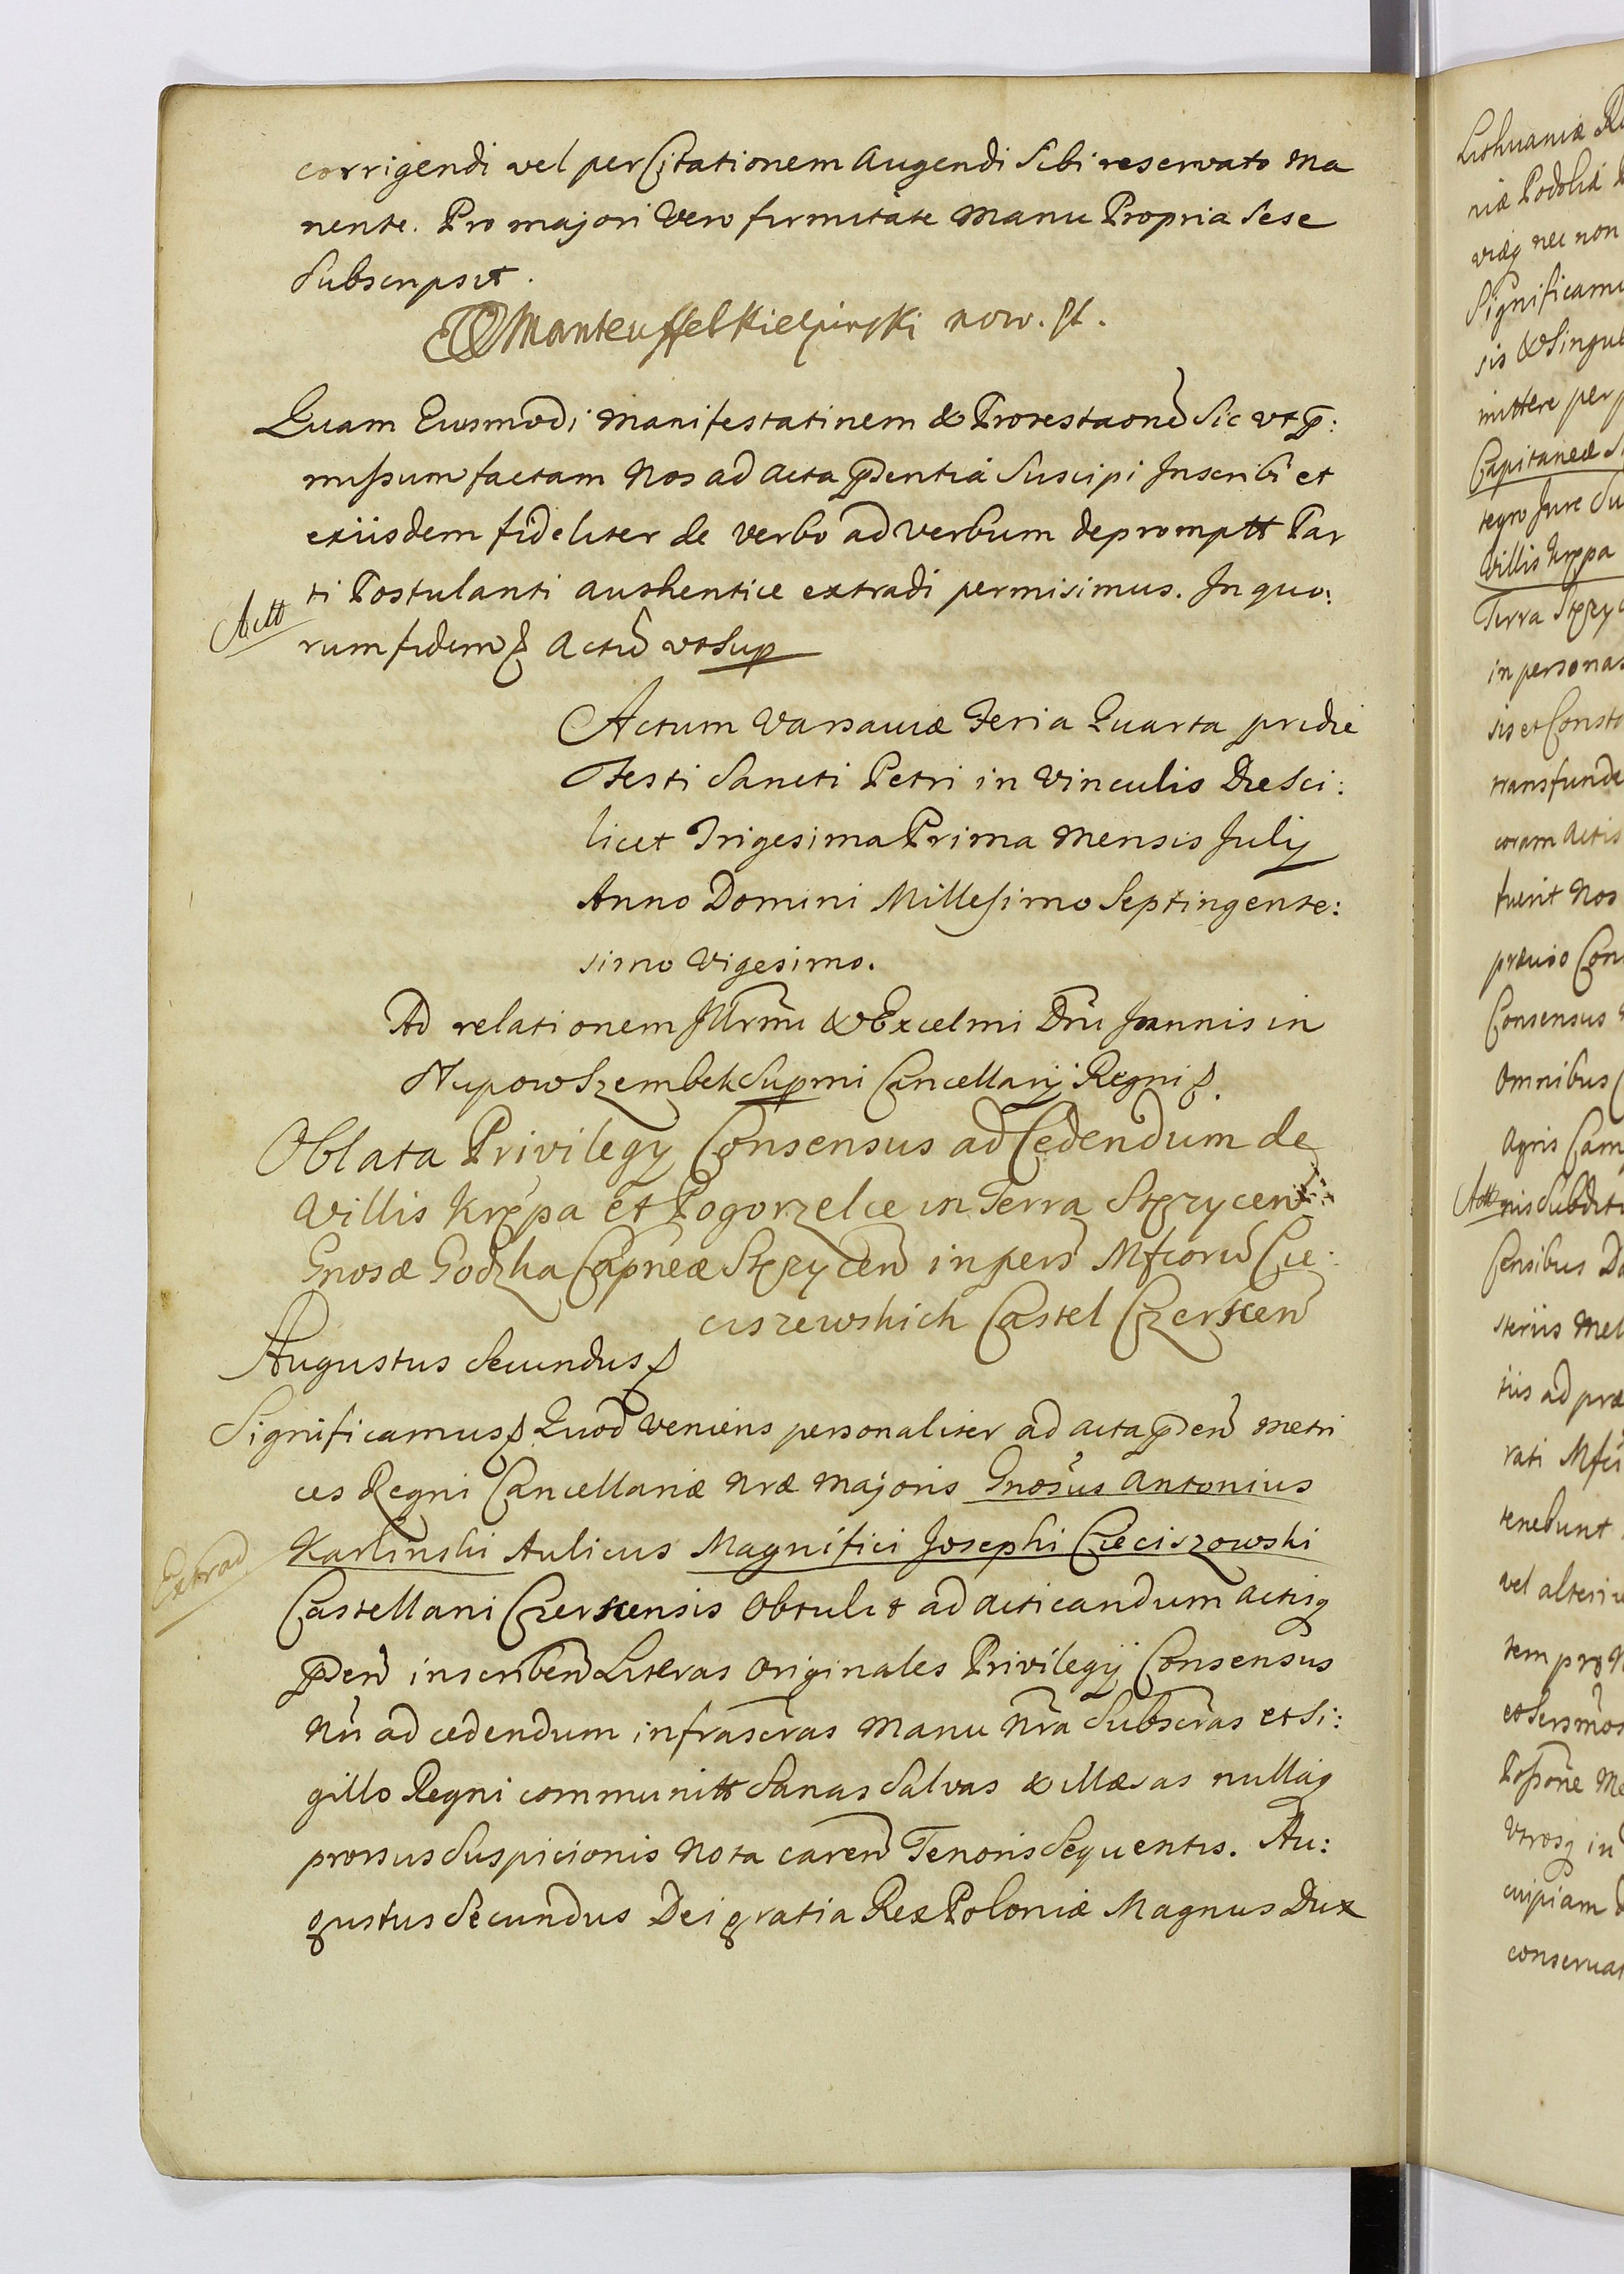 corrigendi vel per Citationem Augendi Sibi reservato ma
nente. Pro majori Vero firmitate manu Propria Sese
Subscripsit.
Manteuffel Kielpinski
Quam Eiusmodi manifestatinem & Protestaone Sic vt p:
missum factam Nos ad acta pdentia Suscipi Inscribi et
exiisdem fideliter de verbo ad verbum depromptt Par
ti Postulanti authentice extradi permisimus. In quo:
Actt
rum fidem Actu vt Sup
Actum Varsaviæ Feria Quarta pridie
Festi Sancti Petri in Vinculis Die Sci:
licet Trigesima Prima mensis July
Anno Domini Millesimo Septingente:
simo Vigesimo.
Ad relationem Illrmi & Excelmi Dni Joannis in
Słupow Szembek Supmi Cancellarij Regni
Oblata Privilegy Consensus ad Cedendum de
Villis Krępa et Pogorzelce in Terra Stężycen
Gnosæ Godzka Capneæ Stężycen in pers Mfcorū Cie:
ciszewskich Castel Czerscen
Augustus Secundus
Significamus Quod Veniens personaliter ad acta pden metri
ces Regni Cancellariæ nræ majoris Gnosus Antonius
Karlinski Aulicus Magnifici Josephi Cieciszowski
Extrad
Castellani Czerscensis obtulit ad acticandum actisq
pden inscriben Literas originales Privilegij Consensus
nri ad cedendum infrascras manu nra Subscras et Si:
gillo Regni communitt Sanas Salvas & illæsas nullaq
prorsus Suspicionis nota caren Tenoris Sequentis. Au:
gustus Secundus Dei gratia Rex Poloniæ Magnus Dux
Lithuaniæ
niæ Podoliæ
nec non
sis & Singul
mittere per
Capitaneæ
tegro Jure Su
Villis Krępa
Terra
in personas
sis et Consto
transfunde
coram actis
fuerit Nos
prævio Con
Consensus
Omnibus
Agris Cam
Actt
nis Subditi
Censibus
steriis Mel
tiis ad præ
rati
tenebunt
vel alteri
tem pro
et
Possone
Vtrosq in
cuipiam
conservat